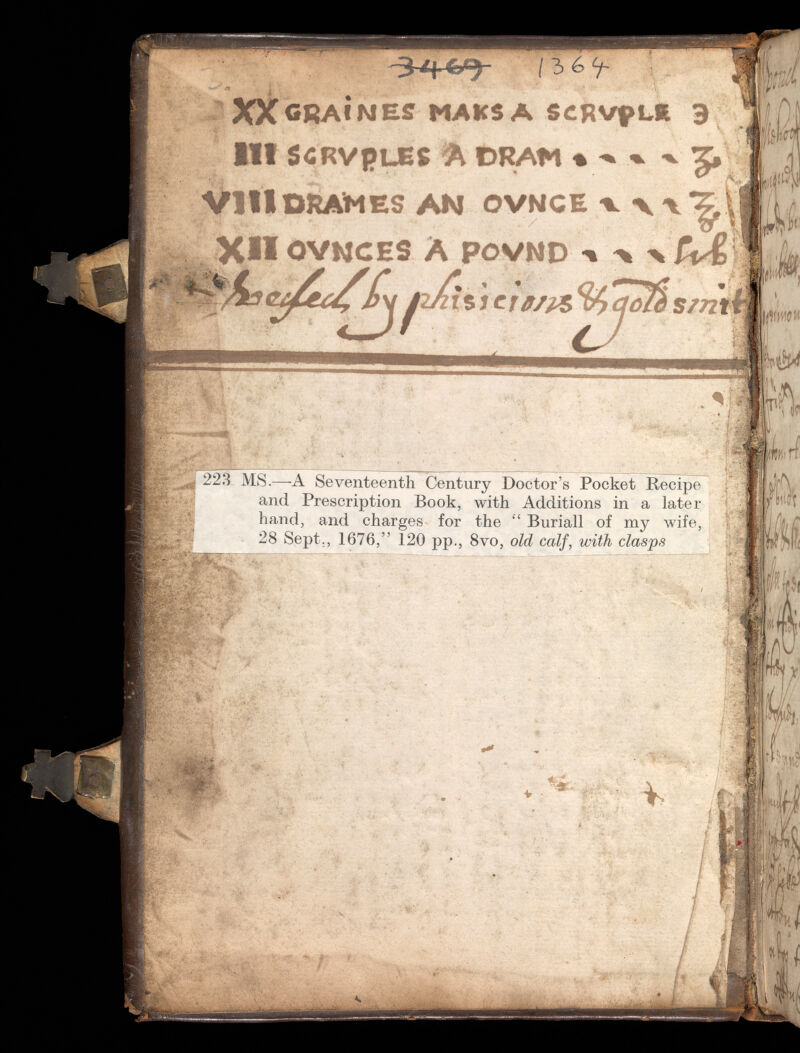 3469 1364
XX GRAINES MAKS A SCRVPLE ℈
III SCRVPLES A DRAM ʒ
VIII DRAMES AN OVNCE ℥
XII OVNCES A POVND lib
by phisicions & goldsmit
223 MS.—A Seventeenth Century Doctor's Pocket Recipe
and Prescription Book, with Additions in a later
hand, and charges for the “ Buriall of my wife,
28 Sept., 1676,” 120 pp., 8vo, old calf, with clasps